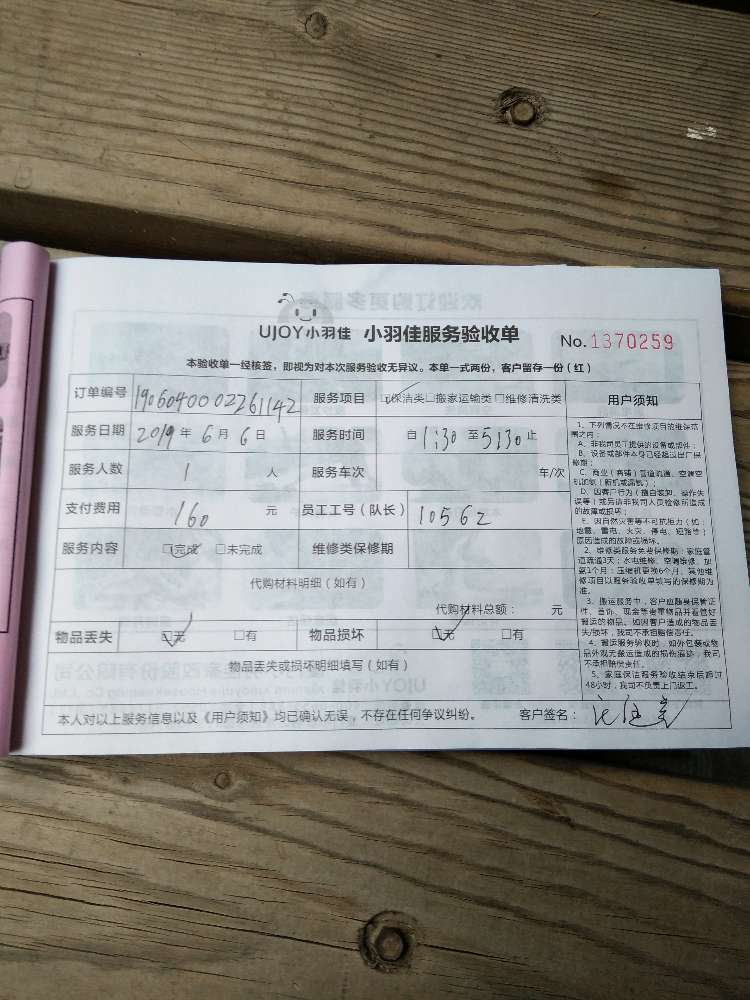 UJOY小羽佳 小羽佳服务验收单 No.1370259
本验收单一经核签，即视为对本次服务验收无异议。本单一式两份，客户留存一份（红）
订单编号 1906040002261142 服务项目 ☑保洁类□搬家运输类□维修清洗类
服务日期 2019 年 6 月 6 日 服务时间 自 1:30 至 5:30 止
服务人数 1 人 服务车次 车/次
支付费用 160 元 员工工号（队长） 10562
服务内容 ☑完成 □未完成 维修类保修期
代购材料明细（如有）
代购材料总额： 元
物品丢失 ☑无 □有 物品损坏 ☑无 □有
物品丢失或损坏明细填写（如有）
本人对以上服务信息以及《用户须知》均已确认无误，不存在任何争议纠纷。 客户签名：
用户须知
1、下列情况不在维修项目的维保范
围之内：
A、非我司员工提供的设备或部件；
B、设备或部件本身已经超过出厂保
修期；
C、商业（商铺）管道疏通、空调空
机加氟（新机或漏氟）；
D、因客户行为（擅自装卸、操作失
误等）或另请非我司人员检修所造成
的故障或损坏；
E、因自然灾害等不可抗拒力（如：
地震、雷电、火灾、停电、短路等）
原因造成的故障或损坏。
2、维修类服务免费保修期：家庭管
道疏通3天；水电维修、空调维修、加
氨1个月；压缩机更换6个月，其他维
修项目以服务验收单填写的保修期为
准。
3、搬运服务中，客户应随身保管证
件、首饰、现金等贵重物品并看管好
搬运的物品。如因客户造成的物品丢
失/损坏，我司不承担赔偿责任。
4、搬运服务验收时，如外包装或物
品外观无搬运造成的损伤痕迹，我司
不承担赔偿责任。
5、家庭保洁服务验收结束后超过
48小时，我司不负责上门返工。